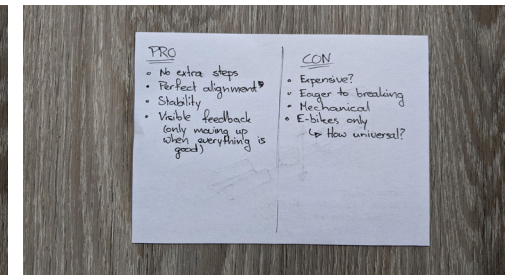 PRO
No extra steps
Perfect alignment
Stability
Visible feedback
(only moving up
when everything is
good)
CON
Expensive?
Eager to breaking
Mechanical
E-bikes only
↳ How universal?